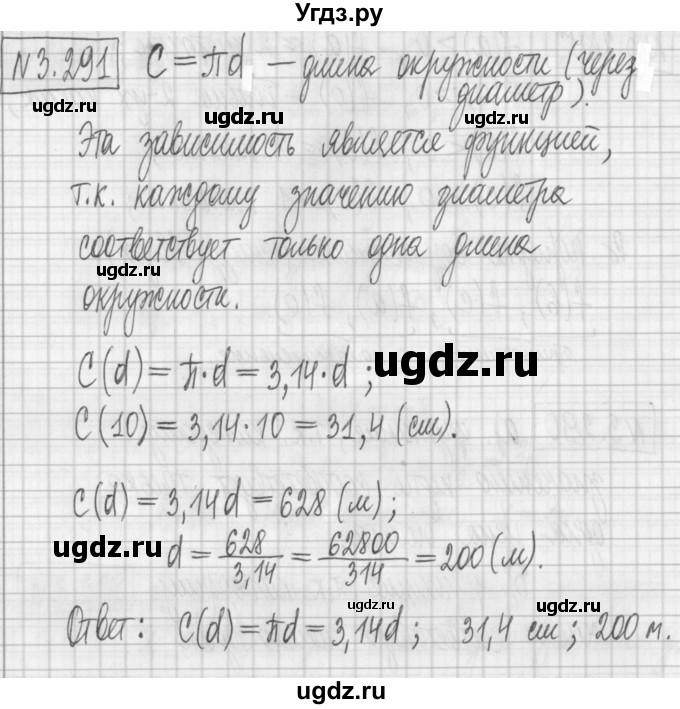 Угдз.ру
№3.291 C = πd — длина окружности (через
ugdz.ru диаметр). ugdz.ru
Эта зависимость является функцией,
т.к. каждому значению диаметра
ugdz.ru
соответствует только одна длина
ugdz.ru
окружности.
C(d) = π·d = 3,14·d ; ugdz.ru
C(10) = 3,14·10 = 31,4 (см).
C(d) = 3,14d = 628 (м);
ugdz.ru d = 628/3,14 = 62800/314 = 200 (м).
ugdz.ru ugdz.ru
Ответ: C(d) = πd = 3,14d ; 31,4 см ; 200 м.
ugdz.ru ugdz.ru
ugdz.ru